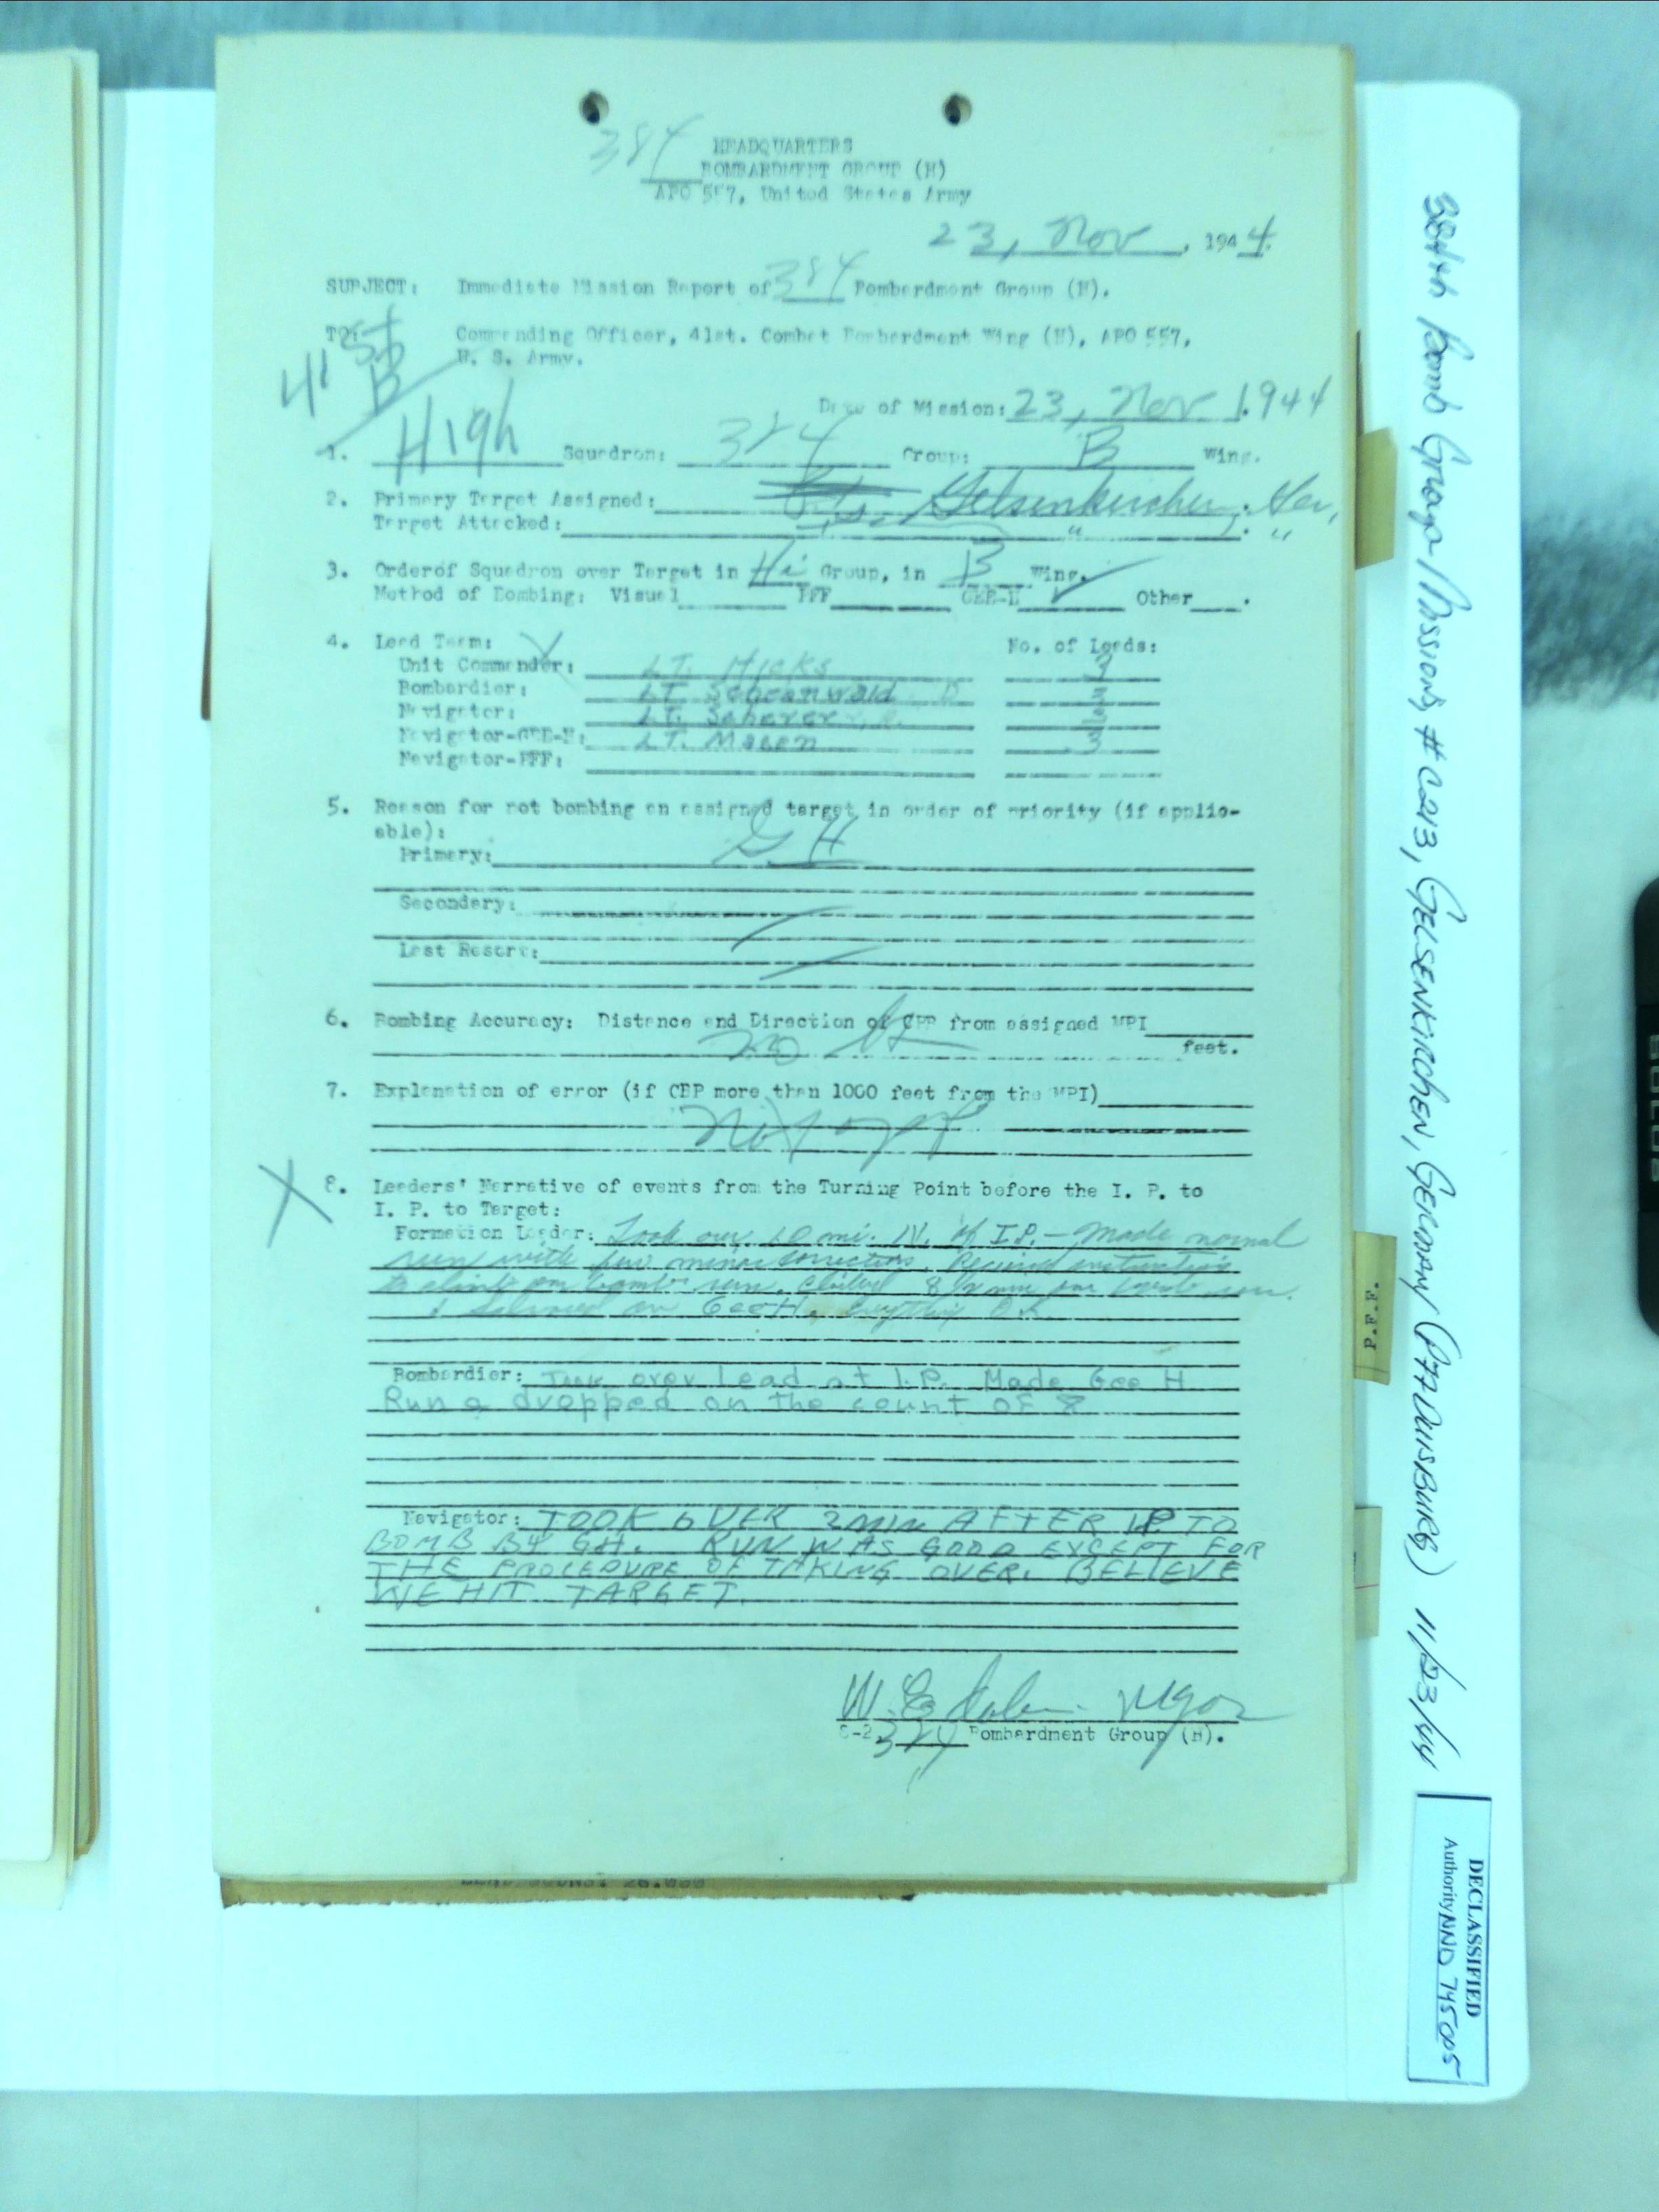 384
HEADQUARTERS
BOMBARDMENT GROUP (H)
APO 557, United States Army
23, Nov, 1944.
SUBJECT: Immediate Mission Report of 384 Bombardment Group (H).
TO: Commanding Officer, 41st. Combat Bombardment Wing (H), APO 557,
U. S. Army.
41st
B
Date of Mission: 23, Nov 1.944
1. High Squadron: 384 Group: B Wing.
2. Primary Target Assigned: Gelsenkirchen, Ger,
Target Attacked: " "
3. Orderof Squadron over Target in Hi Group, in B Wing.
Method of Bombing: Visual PFF GEE-H ✓ Other .
4. Lead Team: No. of Leads:
Unit Commander: LT. Hicks
Bombardier: LT.
Navigator: LT. Scherer
Navigator-GEE-H: LT. Mason 3
Navigator-PFF:
5. Reason for not bombing an assigned target in order of priority (if applic-
able):
Primary: G H
Secondary:
Last Resort:
6. Bombing Accuracy: Distance and Direction of CBP from assigned MPI
feet.
7. Explanation of error (if CBP more than 1000 feet from the MPI)
X 8. Leaders' Narrative of events from the Turning Point before the I. P. to
I. P. to Target:
Formation Leader: Took over 10 mi. N. of I.P. - Made normal
run with few minor corrections. Received instructions
to climb on bomb run. 8 1/2 min on bomb run.
on GeeH. Everything O.K.
Bombardier: Took over lead at I.P. Made Gee H
Run & dropped on the count of 8
Navigator: TOOK OVER 2 MIN AFTER IP TO
BOMB BY GH. RUN WAS GOOD EXCEPT FOR
THE PROCEDURE OF TAKING OVER. BELIEVE
WE HIT TARGET.
W. E. Major
S-2, 384 Bombardment Group (H).
384th Bomb Group Mission # 213, GELSENKIRCHEN, GERMANY (P77 DUISBURG) 11/23/44
P.F.F.
DECLASSIFIED
Authority NND 745005